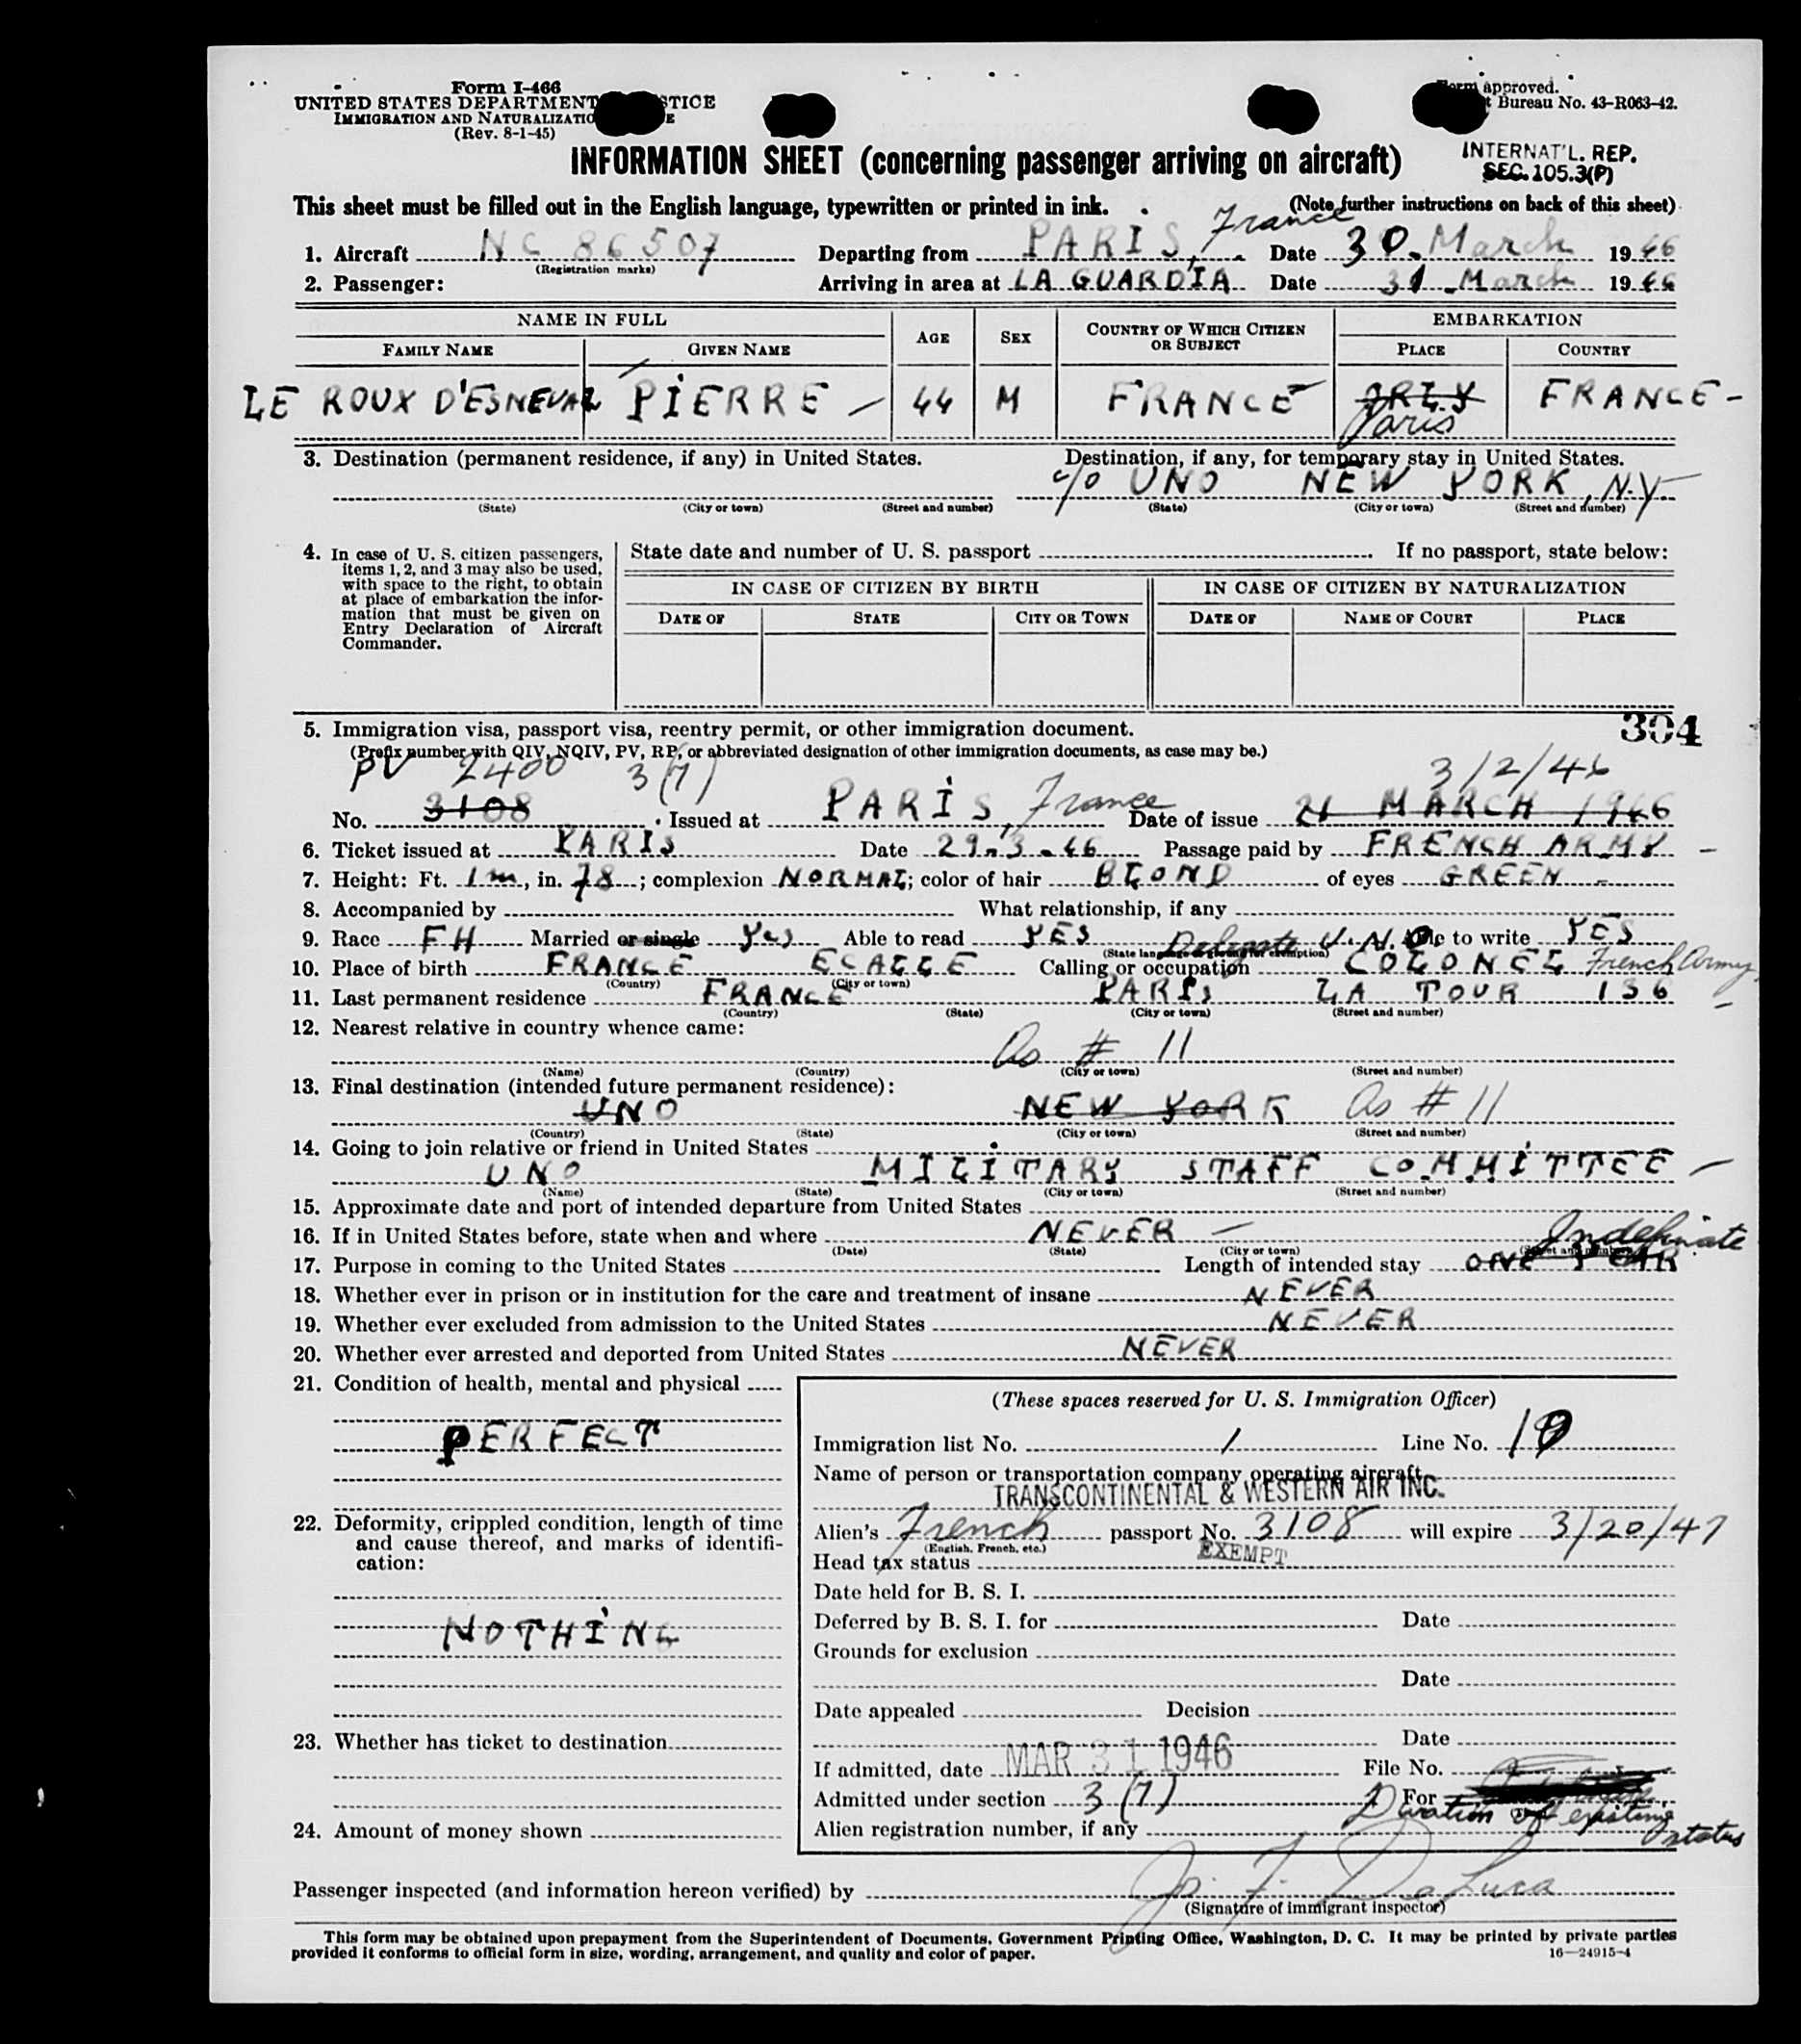 Form I-466
UNITED STATES DEPARTMENT TICE
IMMIGRATION AND NATURALIZATIO E
(Rev. 8-1-45)
approved.
Bureau No. 43-R063-42.
INFORMATION SHEET (concerning passenger arriving on aircraft)
INTERNAT'L. REP.
SEC. 105.3(P)
This sheet must be filled out in the English language, typewritten or printed in ink. (Note further instructions on back of this sheet)
1. Aircraft NC 86507 Departing from PARIS, France Date 30 March 1946
(Registration marks)
2. Passenger: Arriving in area at LA GUARDIA Date 31 March 1946
NAME IN FULL AGE SEX COUNTRY OF WHICH CITIZEN OR SUBJECT EMBARKATION
FAMILY NAME GIVEN NAME PLACE COUNTRY
LE ROUX D'ESNEVAL PIERRE 44 M FRANCE ORLY FRANCE
Paris
3. Destination (permanent residence, if any) in United States. Destination, if any, for temporary stay in United States.
c/o UNO NEW YORK, N.Y.
(State) (City or town) (Street and number) (State) (City or town) (Street and number)
4. In case of U. S. citizen passengers, items 1, 2, and 3 may also be used, with space to the right, to obtain at place of embarkation the information that must be given on Entry Declaration of Aircraft Commander.
State date and number of U. S. passport If no passport, state below:
IN CASE OF CITIZEN BY BIRTH IN CASE OF CITIZEN BY NATURALIZATION
DATE OF STATE CITY OR TOWN DATE OF NAME OF COURT PLACE
304
5. Immigration visa, passport visa, reentry permit, or other immigration document.
(Prefix number with QIV, NQIV, PV, RP, or abbreviated designation of other immigration documents, as case may be.)
PV 2400 3(7) 3/2/46
No. 3108 Issued at PARIS, France Date of issue 21 MARCH 1946
6. Ticket issued at PARIS Date 29.3.46 Passage paid by FRENCH ARMY
7. Height: Ft. 1m, in. 78; complexion NORMAL; color of hair BLOND of eyes GREEN
8. Accompanied by What relationship, if any
9. Race FH Married or single Yes Able to read YES Able to write YES
(State language or ground for exemption)
Delegate U.N.O.
10. Place of birth FRANCE ECALLE Calling or occupation COLONEL French Army
(Country) (City or town)
11. Last permanent residence FRANCE PARIS LA TOUR 136
(Country) (State) (City or town) (Street and number)
12. Nearest relative in country whence came:
As # 11
(Name) (Country) (City or town) (Street and number)
13. Final destination (intended future permanent residence):
UNO NEW YORK As # 11
(Country) (State) (City or town) (Street and number)
14. Going to join relative or friend in United States
UNO MILITARY STAFF COMMITTEE
(Name) (State) (City or town) (Street and number)
15. Approximate date and port of intended departure from United States
16. If in United States before, state when and where NEVER
(Date) (State) (City or town) (Street and number)
Indefinite
17. Purpose in coming to the United States Length of intended stay ONE YEAR
18. Whether ever in prison or in institution for the care and treatment of insane NEVER
19. Whether ever excluded from admission to the United States NEVER
20. Whether ever arrested and deported from United States NEVER
21. Condition of health, mental and physical
PERFECT
22. Deformity, crippled condition, length of time and cause thereof, and marks of identification:
NOTHING
23. Whether has ticket to destination
24. Amount of money shown
(These spaces reserved for U. S. Immigration Officer)
Immigration list No. 1 Line No. 19
Name of person or transportation company operating aircraft
TRANSCONTINENTAL & WESTERN AIR INC.
Alien's French passport No. 3108 will expire 3/20/47
(English, French, etc.)
Head tax status EXEMPT
Date held for B. S. I.
Deferred by B. S. I. for Date
Grounds for exclusion
Date
Date appealed Decision
Date
If admitted, date MAR 31 1946 File No.
Admitted under section 3(7) For
Duration of existing status
Alien registration number, if any
Passenger inspected (and information hereon verified) by J. F. DeLuca
(Signature of immigrant inspector)
This form may be obtained upon prepayment from the Superintendent of Documents, Government Printing Office, Washington, D. C. It may be printed by private parties
provided it conforms to official form in size, wording, arrangement, and quality and color of paper. 16—24915-4